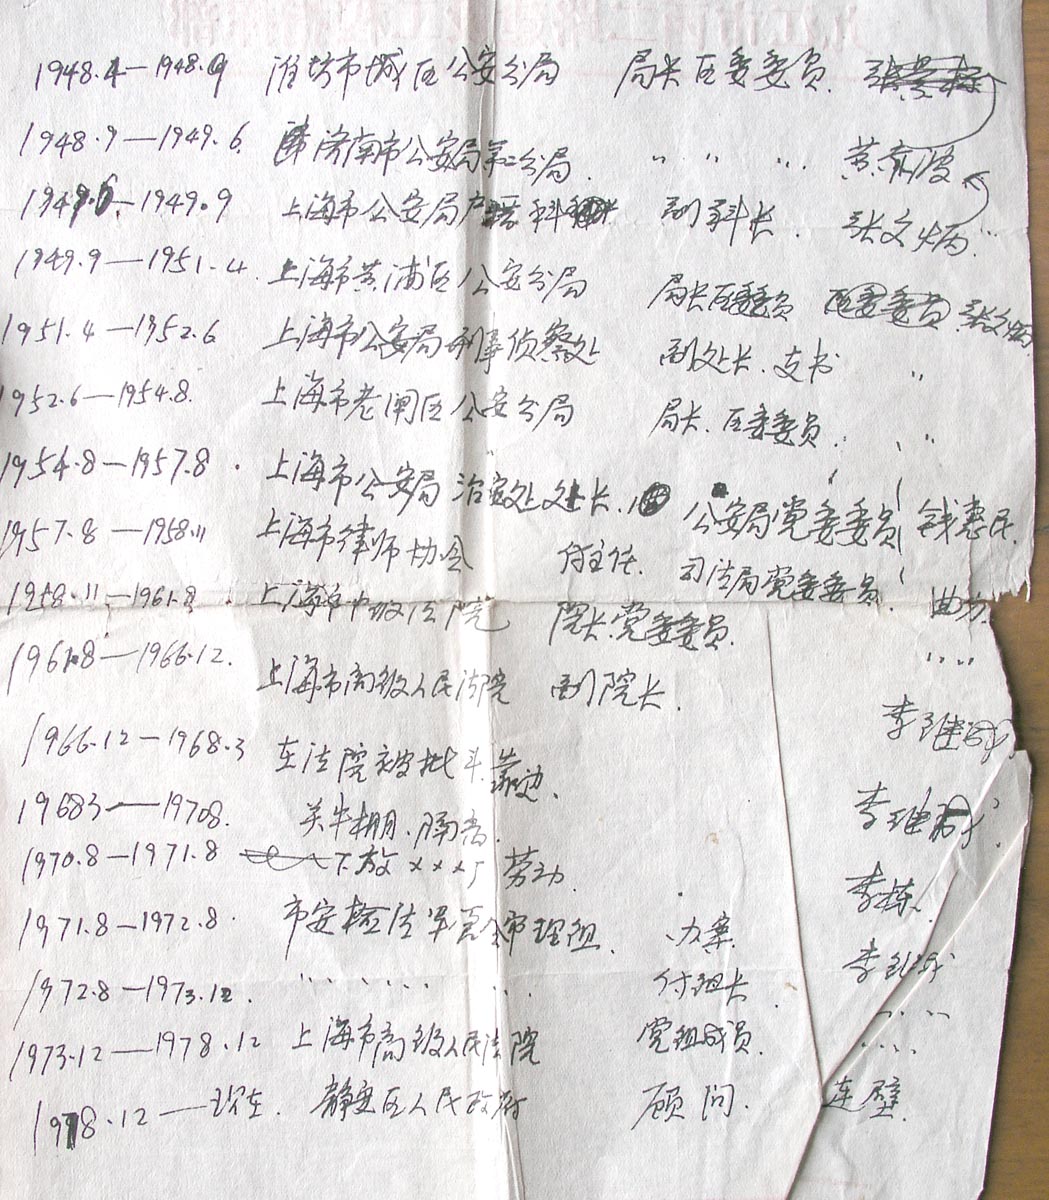 1948.4—1948.9 潍坊市城区公安分局 局长 区委委员
1948.9—1949.6. 济南市公安局第二分局. 〃 〃 〃. 黄
1949.6—1949.9 上海市公安局 科 副科长. 张文炳
1949.9—1951.4. 上海市黄浦区公安分局 局长区委委员 区委委员 张文炳
1951.4—1952.6 上海市公安局刑事侦察处 副处长.支书 〃
1952.6—1954.8. 上海市老闸区公安分局 局长.区委委员. 〃
1954.8—1957.8. 上海市公安局治安处处长. 公安局党委委员 钱惠民
1957.8—1958.11 上海市律师协会 付主任. 司法局党委委员. 曲方
1958.11—1961.8 上海市中级法院 院长.党委委员. 〃〃
1961.8—1966.12. 上海市高级人民法院 副院长. 李继成
1966.12—1968.3 在法院被批斗靠边.
1968.3—1970.8. 关牛棚.隔离. 李继成
1970.8—1971.8 下放×××厂劳动. 李栋
1971.8—1972.8. 市公检法军管会审理组. 办案. 李继成
1972.8—1973.12. 〃〃〃〃〃〃 付组长. 〃〃
1973.12—1978.12 上海市高级人民法院 党组成员. 〃〃
1978.12—现在. 静安区人民政府 顾问. 连壁.